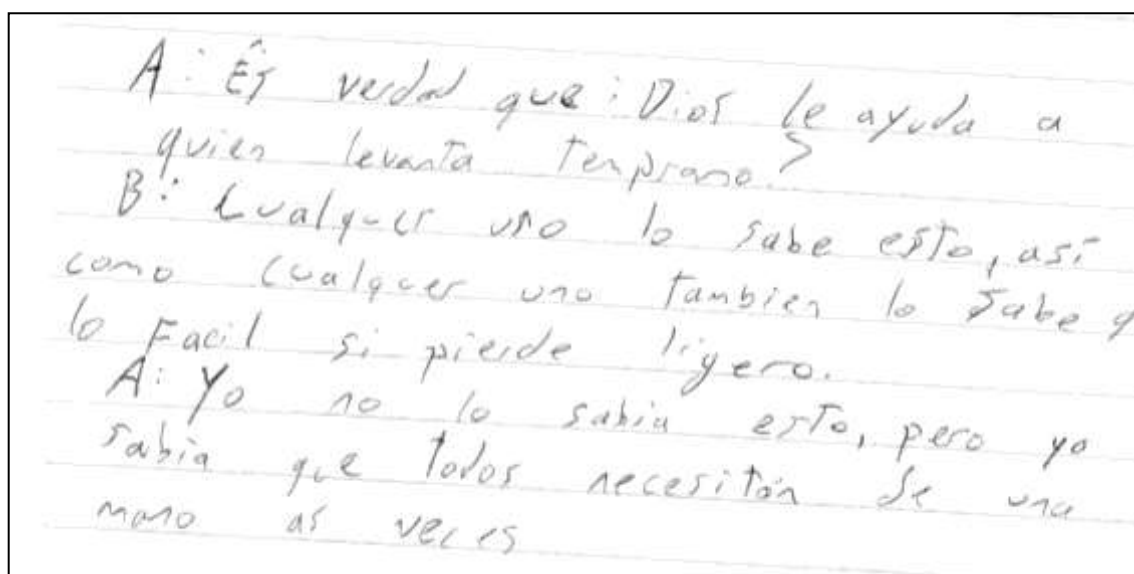 A: És verdad que: Dios le ayuda a
quien levanta temprano?
B: Cualquer uno lo sabe esto, así
como cualquer uno tambien lo sabe q
lo Facil si pierde ligero.
A: Yo no lo sabia esto, pero yo
sabia que todos necesitán de una
mano as veces